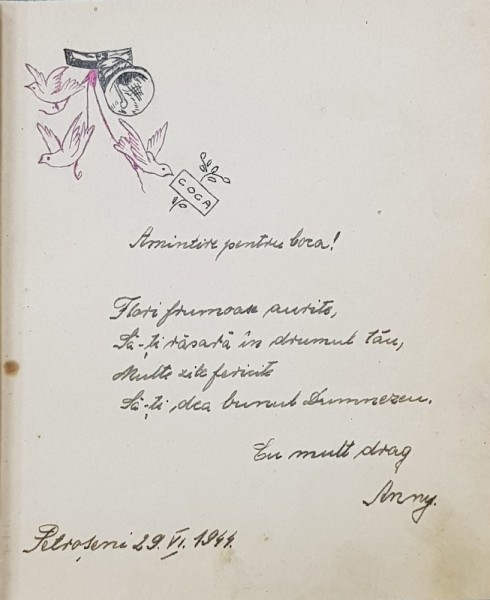 COCA
Amintire pentru Coca!
Flori frumoase aurite,
Să-ți răsară în drumul tău,
Multe zile fericite
Să-ți dea bunul Dumnezeu.
Cu mult drag
Anny.
Petroșeni 29. VI. 1944.